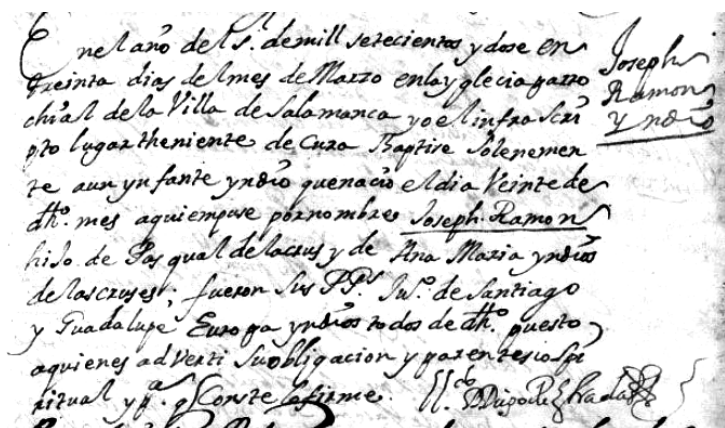 En el año del S.r de mill setecientos y dose en
treinta dias del mes de Marzo en la yglecia parro
chial de la Villa de Salamanca yo el infra scri
pto lugar theniente de Cura Baptise Solenemen
te a un ynfante yndio que nacio el dia Veinte de
dho. mes a quien puse por nombre Joseph Ramon
hijo de Pasqual de la crus y de Ana Maria yndios
de las cruses. fueron sus PPs. Jus.o de Santiago
y Guadalupe Europa yndios todos de dho. puesto
a quienes adverti su obligacion y parentesco Spi
ritual y p.a q Conste lo firme.
Joseph
Ramon
Yndio